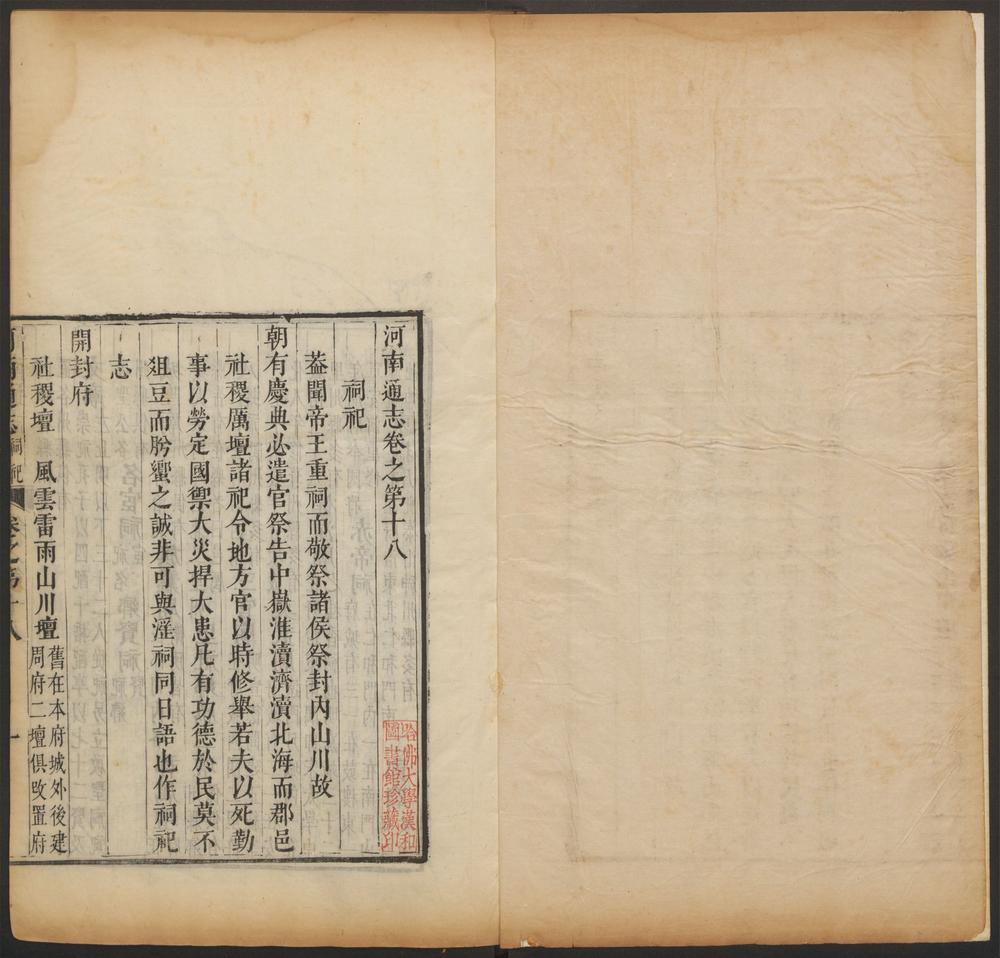 河南通志卷之第十八
祠祀
葢聞帝王重祠而敬祭諸侯祭封內山川故
朝有慶典必遣官祭告中嶽淮瀆濟瀆北海而郡邑
社稷厲壇諸祀令地方官以時修舉若夫以死勤
事以勞定國禦大災捍大患凡有功德於民莫不
俎豆而肸蠁之誠非可與淫祠同日語也作祠祀
志
開封府
社稷壇 風雲雷雨山川壇 舊在本府城外後建
周府二壇俱改置府
河南通志 祠祀 卷之第十八 一
哈佛大學漢和
圖書館珍藏印